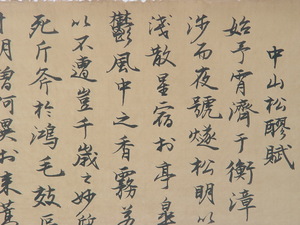 中山松醪賦
始予宵濟于衡漳
涉而夜號燧松明以
淺散星宿於亭皋
鬱風中之香霧若
以不遭豈千歲之妙
死斤斧於鴻毛效區
曾何異於束蒿